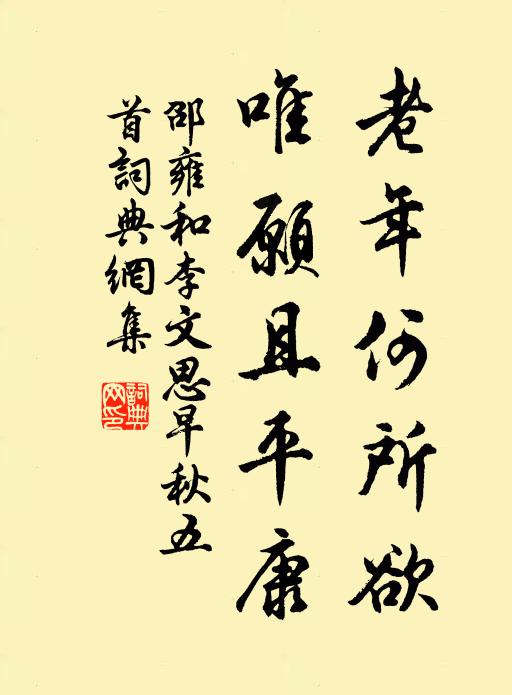 老年何所欲
唯願且平康
邵雍和李文思早秋五
首詞典網集
詞典
网印